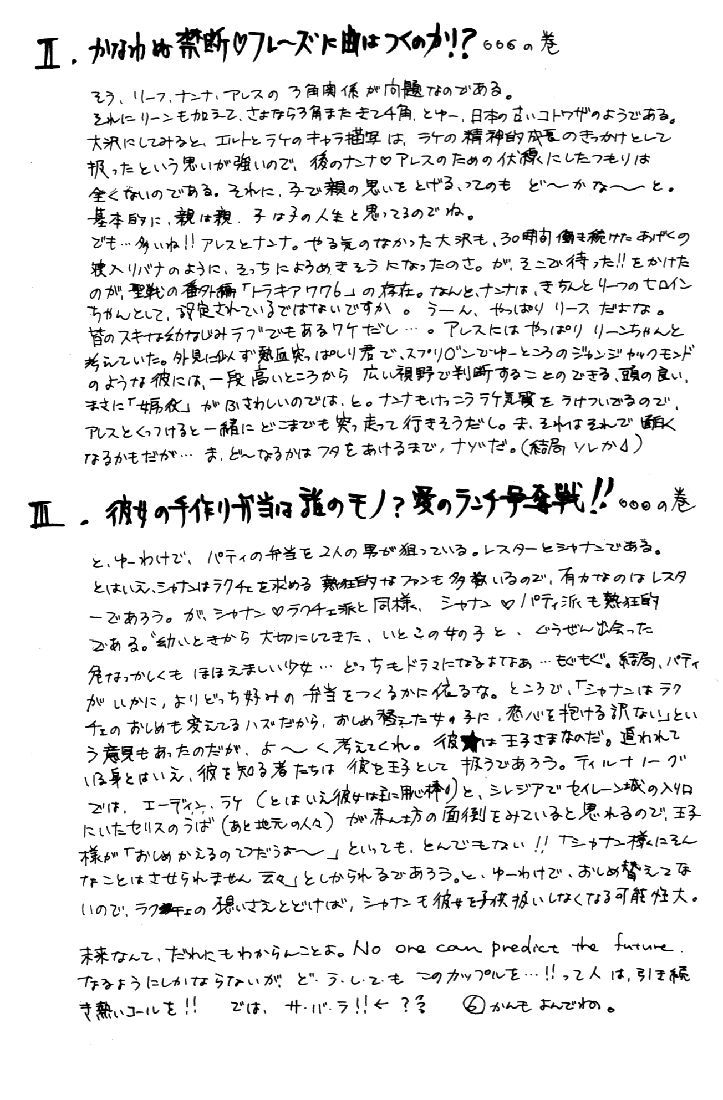 Ⅱ. かなわぬ禁断♡フレーズに曲はつくのか!? 。。。の巻
そう、リーフ、ナンナ、アレスの3角関係が問題なのである。
それにリーンも加えて、さよなら3角またきて4角、とゆー、日本の古いコトワザのようである。
大沢にしてみると、エルトとラケのキャラ描写は、ラケの精神的成長のきっかけとして
扱ったという思いが強いので、後のナンナ♡アレスのための伏線にしたつもりは
全くないのである。それに、子で親の思いをとげる、ってのも ど〜かな〜と。
基本的に、親は親、子は子の人生と思ってるのでね。
でも…多いね!! アレスとナンナ。やる気のなかった大沢も、30時間働き続けたあげくの
狭入りバナのように、そっちによろめきそうになったのさ。が、そこで待った!!をかけた
のが、聖戦の番外編「トラキア776」の存在。なんと、ナンナは、きちんとリーフのヒロイン
ちゃんとして、設定されているではないですか。うーん、やっぱり リーフ だよな。
皆のスキな幼なじみラブでもあるワケだし…。アレスには やっぱり リーンちゃんと
考えていた。外見に似ず熱血突っぱしり君で、スプリガンでゆーところのジャンジャックモンド
のような彼には、一段高いところから 広い視野で判断することのできる、頭の良い、
まさに「女房役」がふさわしいのでは、と。ナンナもけっこうラケ気質をうけついでるので、
アレスとくっつけると一緒にどこまでも突っ走って行きそうだし。ま、それはそれで面白く
なるかもだが… ま、ど〜なるかはフタをあけるまで、ナゾだ。(結局ソレかい)
Ⅲ. 彼女の手作り弁当は誰のモノ?愛のランチ争奪戦!! 。。。の巻
と、ゆーわけで、パティの弁当を2人の男が狙っている。レスターとシャナンである。
とはいえ、シャナンはラクチェを求める 熱狂的なファンも多数いるので、有力なのはレスタ
ーであろう。が、シャナン♡ラクチェ派と同様、シャナン♡パティ派も熱狂的
である。幼いときから 大切にしてきた、いとこの女の子と、ぐうぜん出会った
危なっかしくも ほほえましい少女… どっちもドラマになるよなあ…もぐもぐ。結局、パティ
がいかに、よりどっち好みの 弁当をつくるかに依るな。ところで、「シャナンはラク
チェのおしめも変えてるハズだから、おしめ替えた女の子に、恋心を抱ける訳ない」とい
う意見もあったのだが、よ〜く考えてくれ。彼は王子さまなのだ。追われて
いる身とはいえ、彼を知る者たちは 彼を王子として 扱うであろう。ティルナノーグ
では、エーディン、ラケ(とはいえ彼女は主に用心棒)と、シレジアでセイレーン城の入り口
にいたセリスのうば(あと地元の人々)が赤ん坊の面倒をみていると思われるので、王子
様が「おしめかえるのてつだうよ〜」といっても、とんでもない!!「シャナン様にそん
なことはさせられません 云々」としかられるであろう。と、ゆーわけで、おしめ替えてな
いので、ラクチェの想いさえとどけば、シャナンも彼女を子供扱いしなくなる可能性大。
未来なんて、だれにもわからんことよ。No one can predict the future.
なるようにしかならないが、ど・う・し・て・も このカップルを…!!って人は、引き続
き熱いコールを!! では、サ・バ・ラ!!←?? ⑥かんも よんでねの。